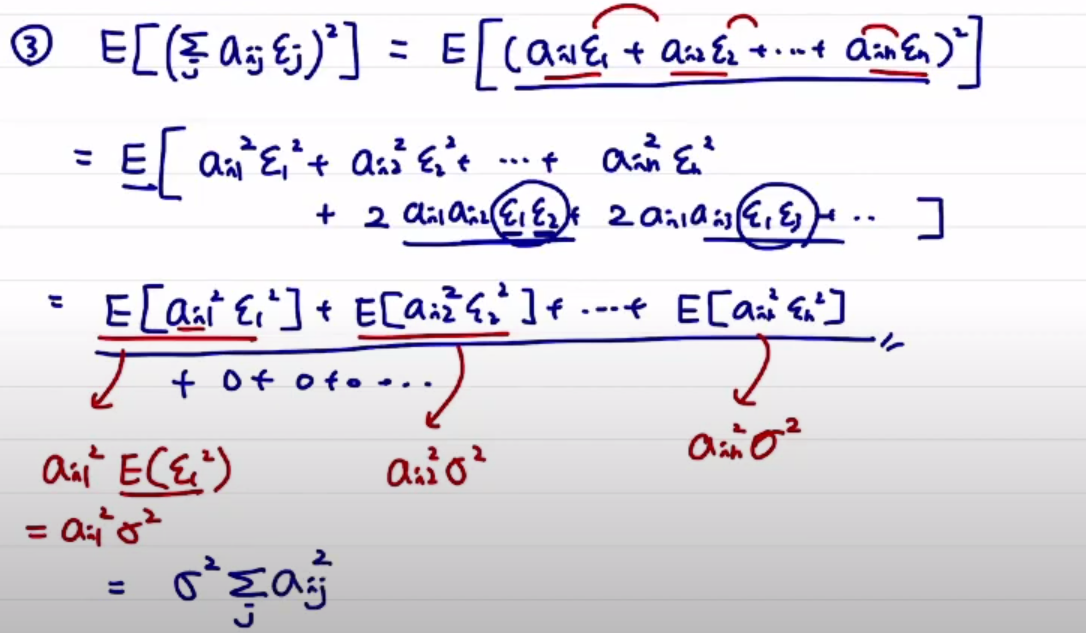 ③ E[(Σ_j a_ij ε_j)²] = E[(a_i1 ε_1 + a_i2 ε_2 + ... + a_in ε_n)²]
= E[ a_i1² ε_1² + a_i2² ε_2² + ... + a_in² ε_n²
+ 2 a_i1 a_i2 ε_1 ε_2 + 2 a_i1 a_i3 ε_1 ε_3 + .. ]
= E[a_i1² ε_1²] + E[a_i2² ε_2²] + ... + E[a_in² ε_n²]
+ 0 + 0 + 0 ...
a_i1² E(ε_1²) a_i2² σ² a_in² σ²
= a_i1² σ²
= σ² Σ_j a_ij²